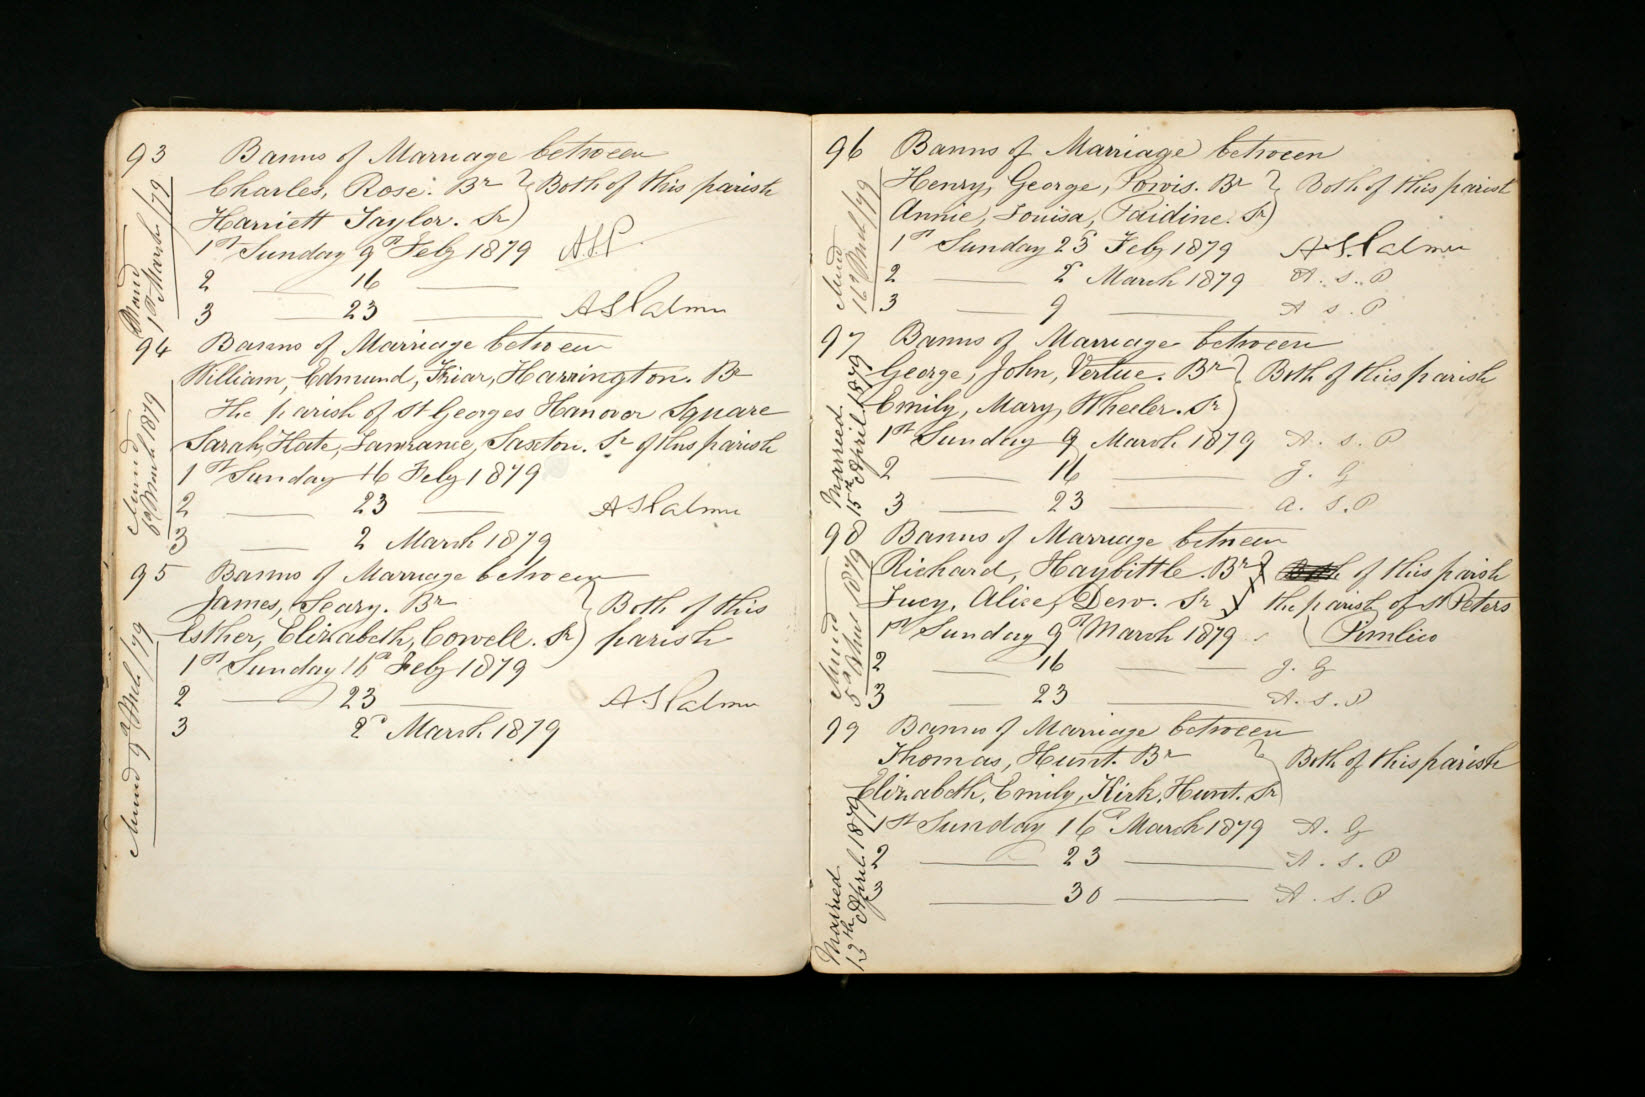 93 Banns of Marriage between
Charles, Rose. Br } Both of this parish
Harriett Taylor. Sr
1st Sunday 9th Feby 1879 ASP
2 — 16 —
3 — 23 — ASPalmer
1st March /79
94 Banns of Marriage between
William, Edmund, Friar, Harrington. Br
The parish of St Georges Hanover Square
Sarah, Kate, Lawrance, Saxton. Sr of this parish
1st Sunday 16 Feby 1879
2 — 23 — ASPalmer
3 — 2 March 1879
March 1879
95 Banns of Marriage between
James, Seary. Br } Both of this
Esther, Elizabeth, Cowell. Sr } parish
1st Sunday 16th Feby 1879
2 — 23 — ASPalmer
3 2d March 1879
9th Mch /79
96 Banns of Marriage between
Henry, George, Powis. Br } Both of this parish
Annie, Louisa, Sr
1st Sunday 23d Feby 1879 ASPalmer
2 — 2d March 1879 A.S.P
3 — 9 — A S.P
16th Mch /79
97 Banns of Marriage between
George, John, Vertue. Br } Both of this parish
Emily, Mary, Wheeler. Sr
1st Sunday 9 March 1879 A.S.P
2 — 16 — J. G
3 — 23 — A. S.P
Married
15th April 1879
98 Banns of Marriage between
Richard, Haybittle. Br } of this parish
Lucy, Alice, Dew. Sr the parish of St Peters
1st Sunday 9th March 1879 Pimlico
2 — 16 — J. G
3 — 23 — A.S.P
1879
99 Banns of Marriage between
Thomas, Hunt. Br } Both of this parish
Elizabeth, Emily, Kirk, Hunt. Sr
1st Sunday 16th March 1879 A. G
2 — 23 — A.S.P
3 — 30 — A.S.P
Married
13th April 1879